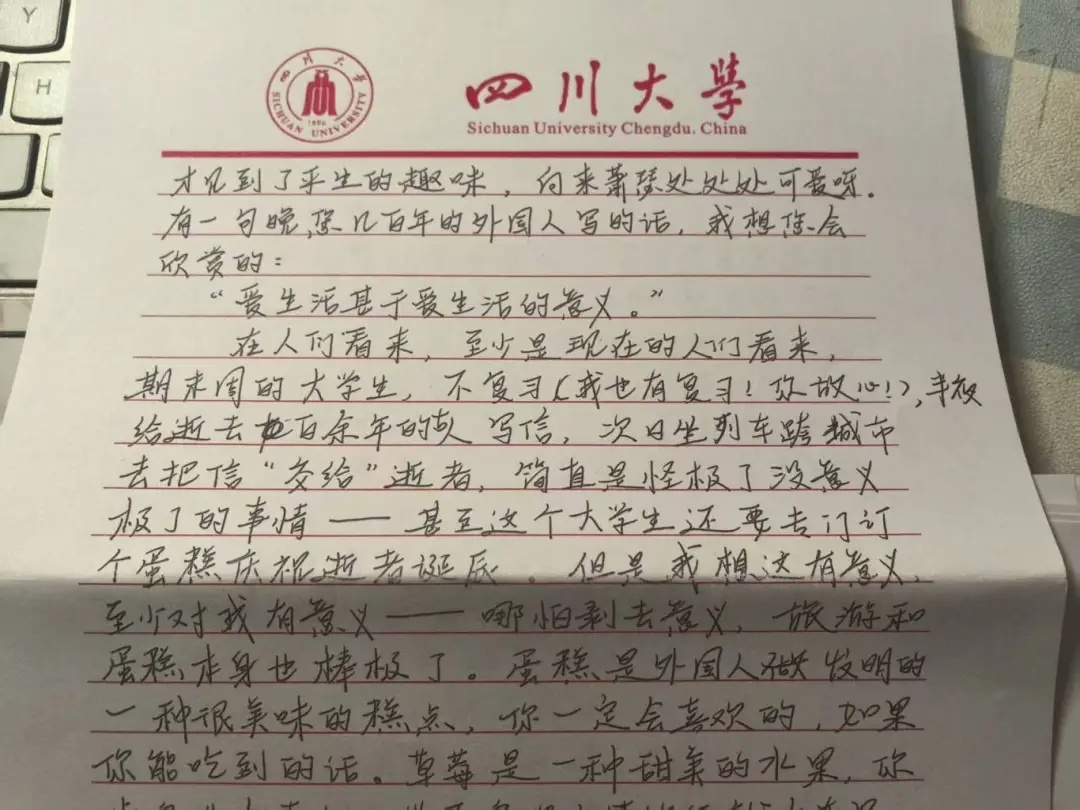 Y
H
四川大学
SICHUAN UNIVERSITY
1896
四川大学
Sichuan University Chengdu. China
才见到了平生的趣味，向来萧瑟处处处可爱呀.
有一句晚您几百年的外国人写的话，我想您会
欣赏的：
“爱生活甚于爱生活的意义。”
在人们看来，至少是现在的人们看来，
期末周的大学生，不复习（我也有复习！你放心！），半夜
给逝去百余年的人写信，次日坐列车跨城市
去把信“交给”逝者，简直是怪极了没意义
极了的事情——甚至这个大学生还要专门订
个蛋糕庆祝逝者诞辰。但是我想这有意义，
至少对我有意义——哪怕剩去意义，旅游和
蛋糕本身也棒极了。蛋糕是外国人发明的
一种很美味的糕点，你一定会喜欢的，如果
你能吃到的话。草莓是一种甜美的水果，你